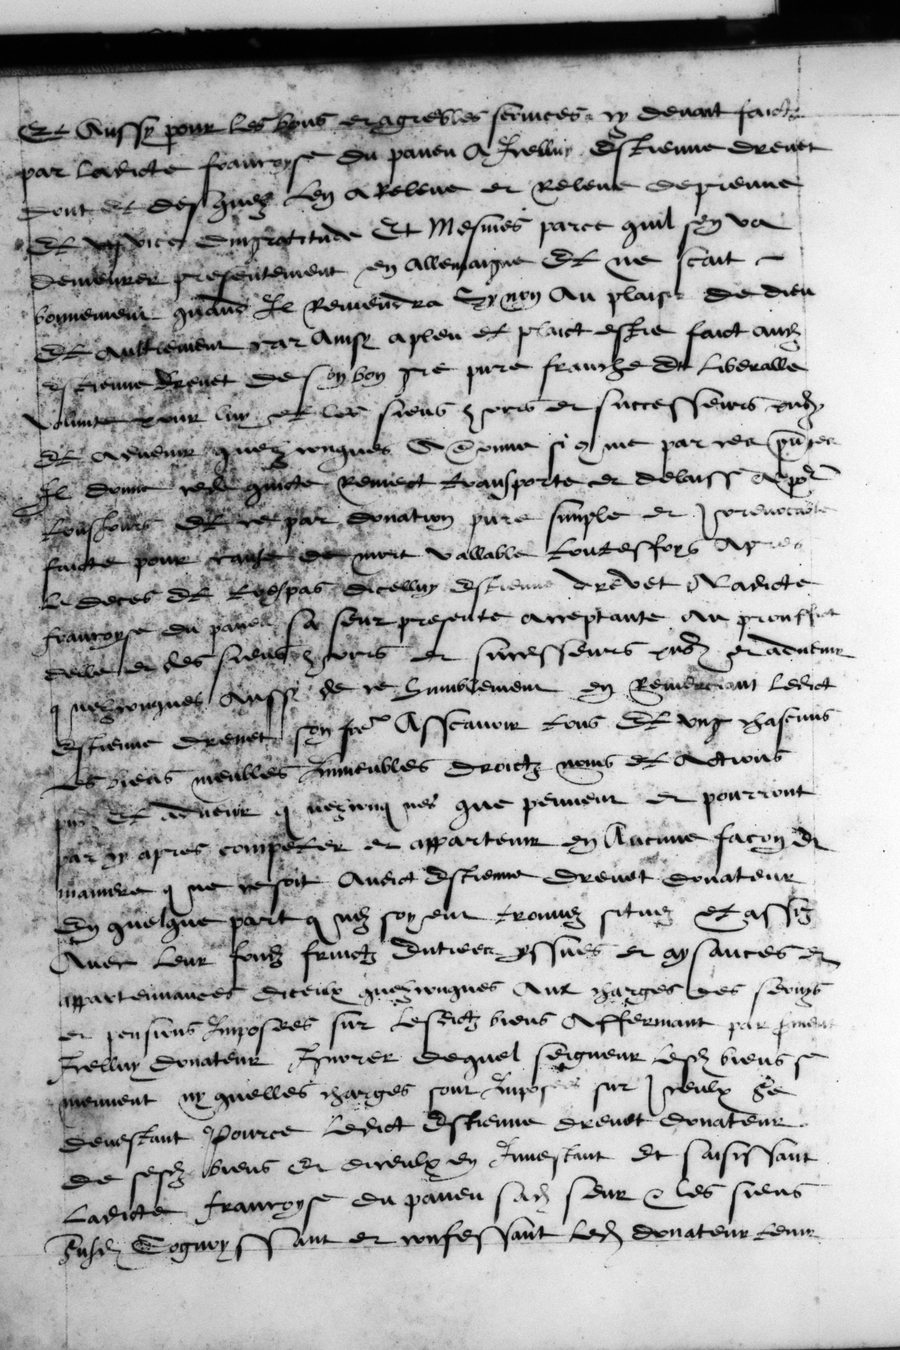 Et Aussy pour les bons et agreables services cy devant faictz
par ladicte francoyse du paneu A Icelluy Estienne drevet
dont et desquelz Len A Releve et Releve de preuve
Et vice dingratitude Et Mesmes parce quil sen va
demeurer presentement en Allemaigne Et ne scait
bonnement quand Il Reviendra Sy non Au plaisir de dieu
Et Aultrement Car Ainsy a pleu et plaict estre faict aud
estienne Drevet De son bon gre pure franche Et Liberalle
volunte pour luy Et les siens hoirs et successeurs
Et Advenir quelzconques A Donne par ces
Il donne cede quicte Remect transporte et delaisse
tousjours Et ce par donation pure simple et Irrevocable
faicte pour cause de mort vallable touteffoys Apres
Le deces Et trespas dicelluy Estienne drevet A Ladicte
francoyse du paneu Sa seur presente acceptante Au prouffict
delle et des siens hoirs et successeurs et advenir
quelzconques Aussy de ce humblement en Remerciant ledict
Estienne drevet son fre Asscavoir tous Et ung chascuns
Les biens meubles Immeubles droictz noms et Actions
Et advenir quelzconques que peuvent et pourront
par cy apres competer et appartenir en Aucune facon Et
maniere que ce soit Audict Estienne drevet donateur
En quelque part quilz soyent trouvez situez Et assiz
Avec Leur fondz fruictz Entrees yssues et aysances et
appartennances diceulx quelzconques Aux charges des servis
et pensions Imposees sur Lesdictz biens Affermant par serment
Icelluy donateur Ignorer dequel seigneur Lesd biens se
meuvent ny quelles charges sont Imposees sur Iceulx Se
devestant Pource Ledict Estienne drevet donateur
De sesd biens Et diceulx en Investant Et saisissant
Ladicte francoyse du paneu sad seur Et les siens
Cognoyssant et confessant Led donateur tenir